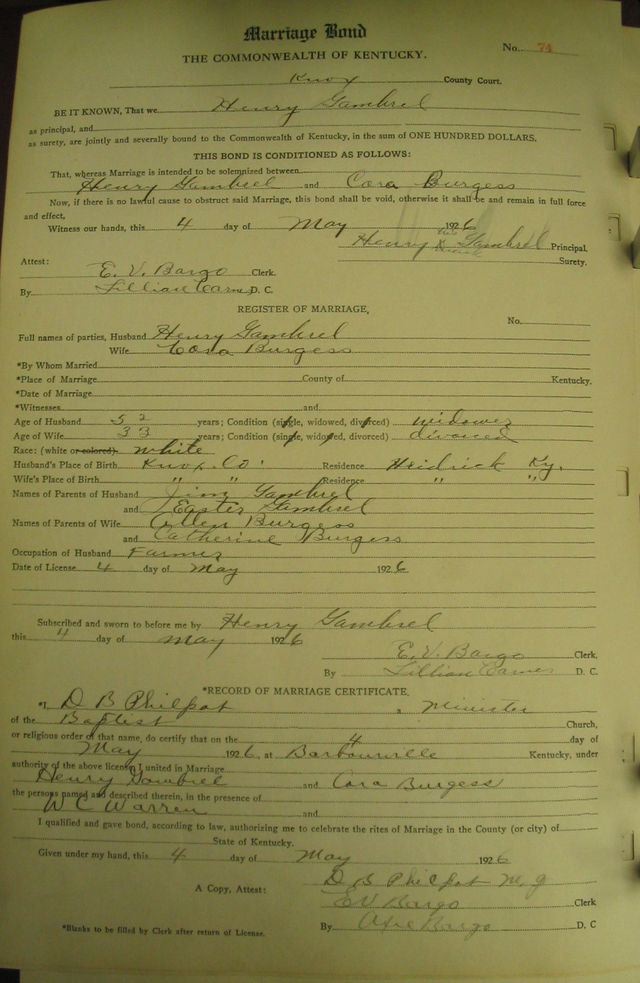 Marriage Bond
THE COMMONWEALTH OF KENTUCKY.
No. 74
Knox County Court.
BE IT KNOWN, That we Henry Gambrel
as principal, and
as surety, are jointly and severally bound to the Commonwealth of Kentucky, in the sum of ONE HUNDRED DOLLARS.
THIS BOND IS CONDITIONED AS FOLLOWS:
That, whereas Marriage is intended to be solemnized between
Henry Gambrel and Cora Burgess
Now, if there is no lawful cause to obstruct said Marriage, this bond shall be void, otherwise it shall be and remain in full force
and effect,
Witness our hands, this 4 day of May 1926
Henry his X mark Gambrel Principal.
Surety.
Attest:
E. V. Bargo Clerk.
By Lillian Carnes D. C.
REGISTER OF MARRIAGE,
No.
Full names of parties, Husband Henry Gambrel
Wife Cora Burgess
*By Whom Married
*Place of Marriage County of Kentucky.
*Date of Marriage
*Witnesses and
Age of Husband 52 years; Condition (single, widowed, divorced) widower
Age of Wife 33 years; Condition (single, widowed, divorced) divorced
Race: (white or colored) white
Husband's Place of Birth Knox Co. Residence Heidrick Ky.
Wife's Place of Birth " " Residence " "
Names of Parents of Husband Jim Gambrel
and Easter Gambrel
Names of Parents of Wife Allen Burgess
and Catherine Burgess
Occupation of Husband Farmer
Date of License 4 day of May 1926
Subscribed and sworn to before me by Henry Gambrel
this 4 day of May 1926
E. V. Bargo Clerk.
By Lillian Carnes D. C.
*RECORD OF MARRIAGE CERTIFICATE.
*I, D B Philpot, a Minister
of the Baptist Church,
or religious order of that name, do certify that on the 4 day of
May 1926, at Barbourville Kentucky, under
authority of the above license I united in Marriage
Henry Gambrel and Cora Burgess
the persons named and described therein, in the presence of
W C Warren and
I qualified and gave bond, according to law, authorizing me to celebrate the rites of Marriage in the County (or city) of
State of Kentucky.
Given under my hand, this 4 day of May 1926
D B Philpot M. G
A Copy, Attest: E V Bargo Clerk
By Bargo D. C
*Blanks to be filled by Clerk after return of License.